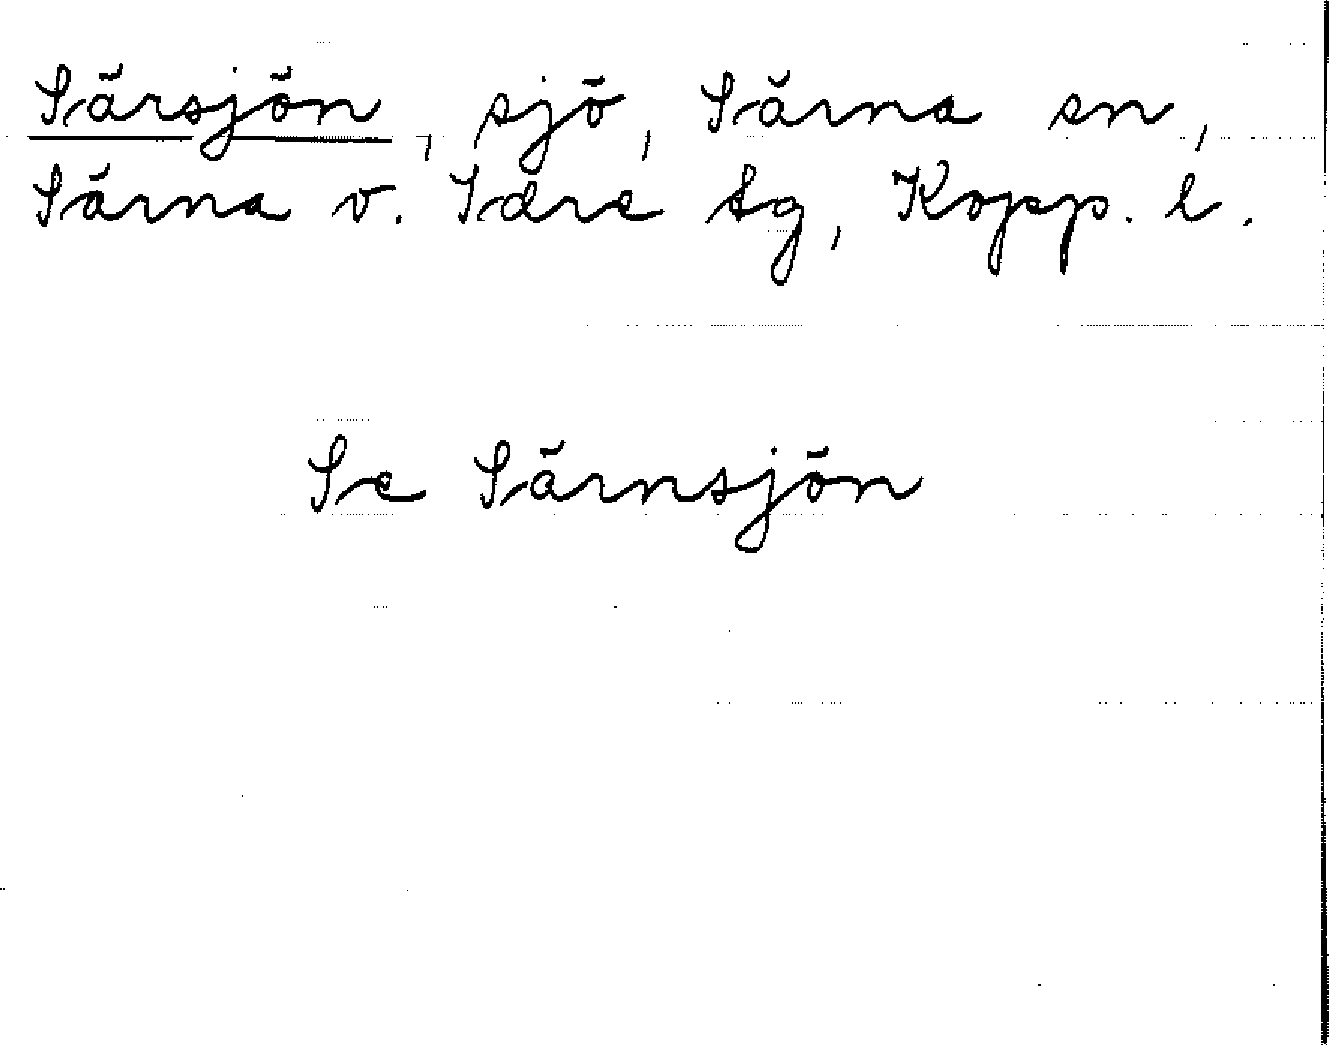 Särsjön, sjö, Särna sn,
Särna o. Idre tg, Kopp. l.
Se Särnsjön